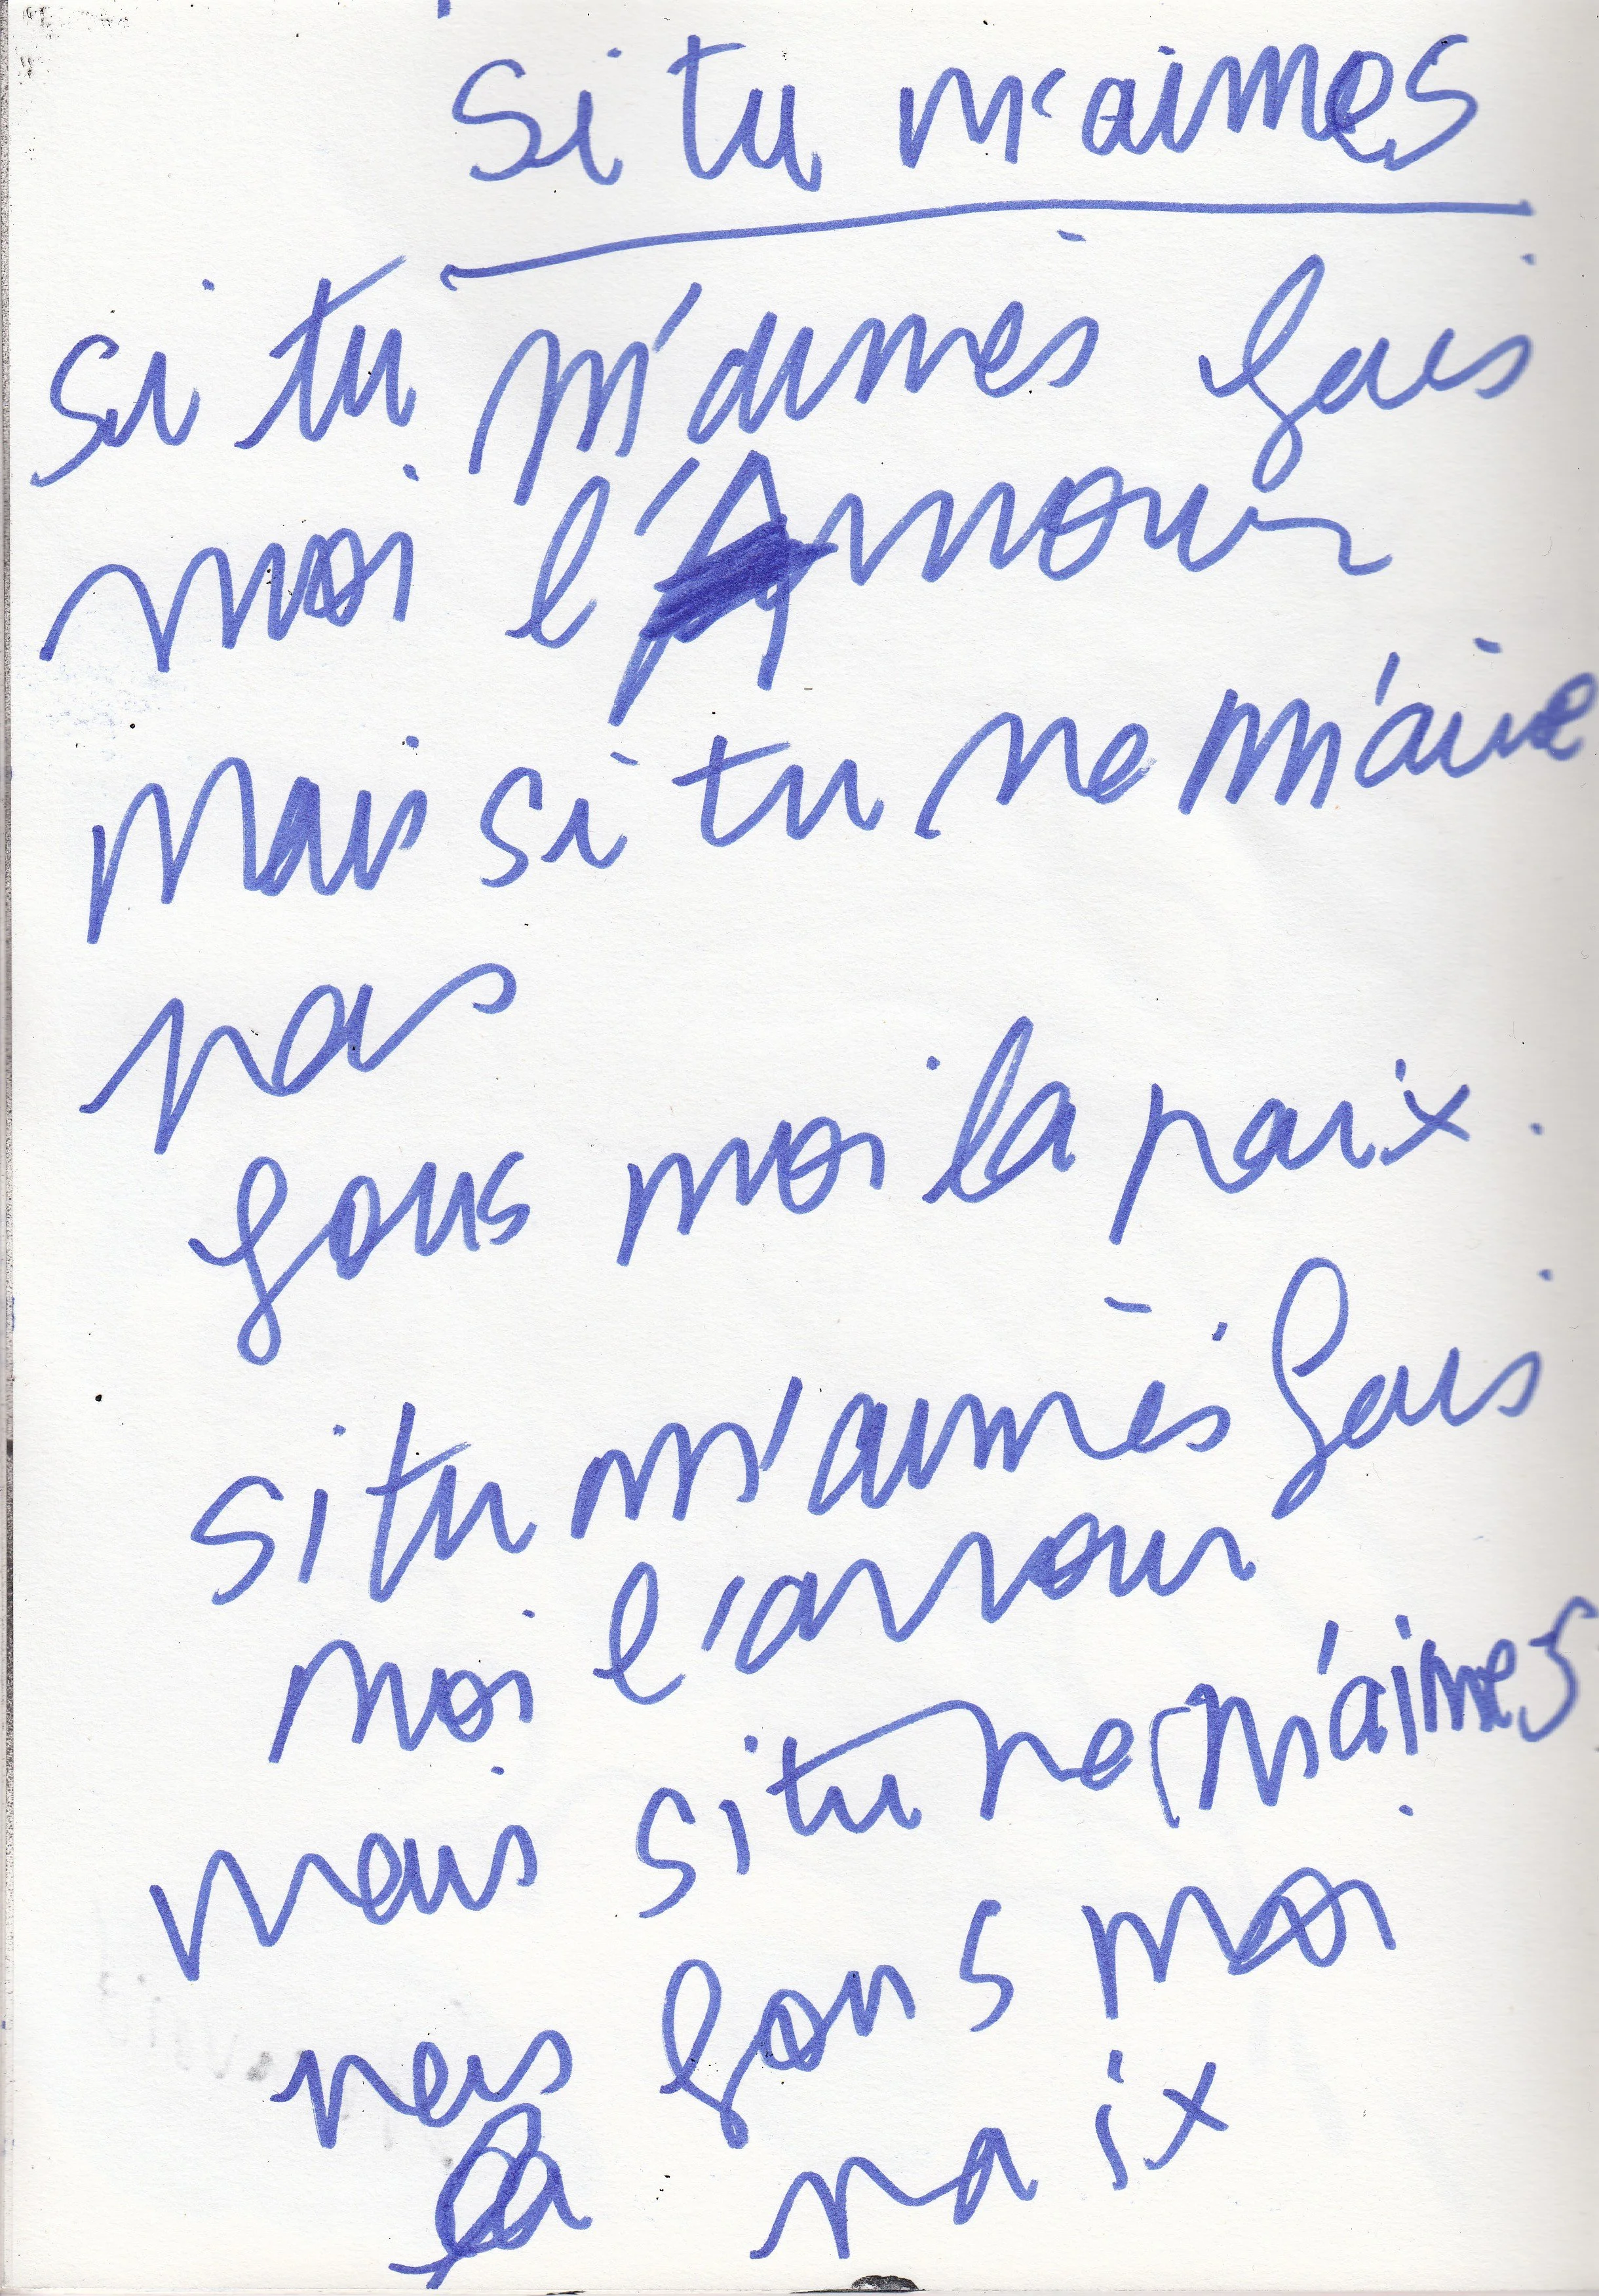 si tu m'aimes
si tu m'aimes fais
moi l'Amour
Mais si tu ne m'aime
pas
fais moi la paix.
si tu m'aimes fais
moi l'amour
mais si tu ne m'aimes
pas fais moi
la paix